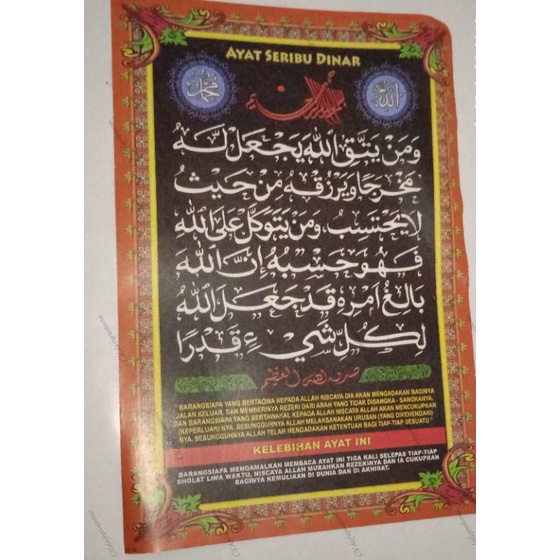 AYAT SERIBU DINAR
محمد
الله
وَمَنْ يَتَّقِ اللَّهَ يَجْعَلْ لَهُ
مَخْرَجًا وَيَرْزُقْهُ مِنْ حَيْثُ
لَا يَحْتَسِبُ وَمَنْ يَتَوَكَّلْ عَلَى اللَّهِ
فَهُوَ حَسْبُهُ إِنَّ اللَّهَ
بَالِغُ أَمْرِهِ قَدْ جَعَلَ اللَّهُ
لِكُلِّ شَيْءٍ قَدْرًا
صدق الله العظيم
" BARANGSIAPA YANG BERTAQWA KEPADA ALLAH NISCAYA DIA AKAN MENGADAKAN BAGINYA
JALAN KELUAR, DAN MEMBERINYA REZEKI DARI ARAH YANG TIDAK DISANGKA - SANGKANYA,
DAN BARANGSIAPA YANG BERTAWAKAL KEPADA ALLAH NISCAYA ALLAH AKAN MENCUKUPKAN
(KEPERLUAN) NYA. SESUNGGUHNYA ALLAH MELAKSANAKAN URUSAN (YANG DIKEHENDAKI)
NYA, SESUNGGUHNYA ALLAH TELAH MENGADAKAN KETENTUAN BAGI TIAP-TIAP SESUATU "
KELEBIHAN AYAT INI
BARANGSIAPA MENGAMALKAN MEMBACA AYAT INI TIGA KALI SELEPAS TIAP-TIAP
SHOLAT LIMA WAKTU, NISCAYA ALLAH MURAHKAN REZEKINYA DAN IA CUKUPKAN
BAGINYA KEMULIAAN DI DUNIA DAN DI AKHIRAT.